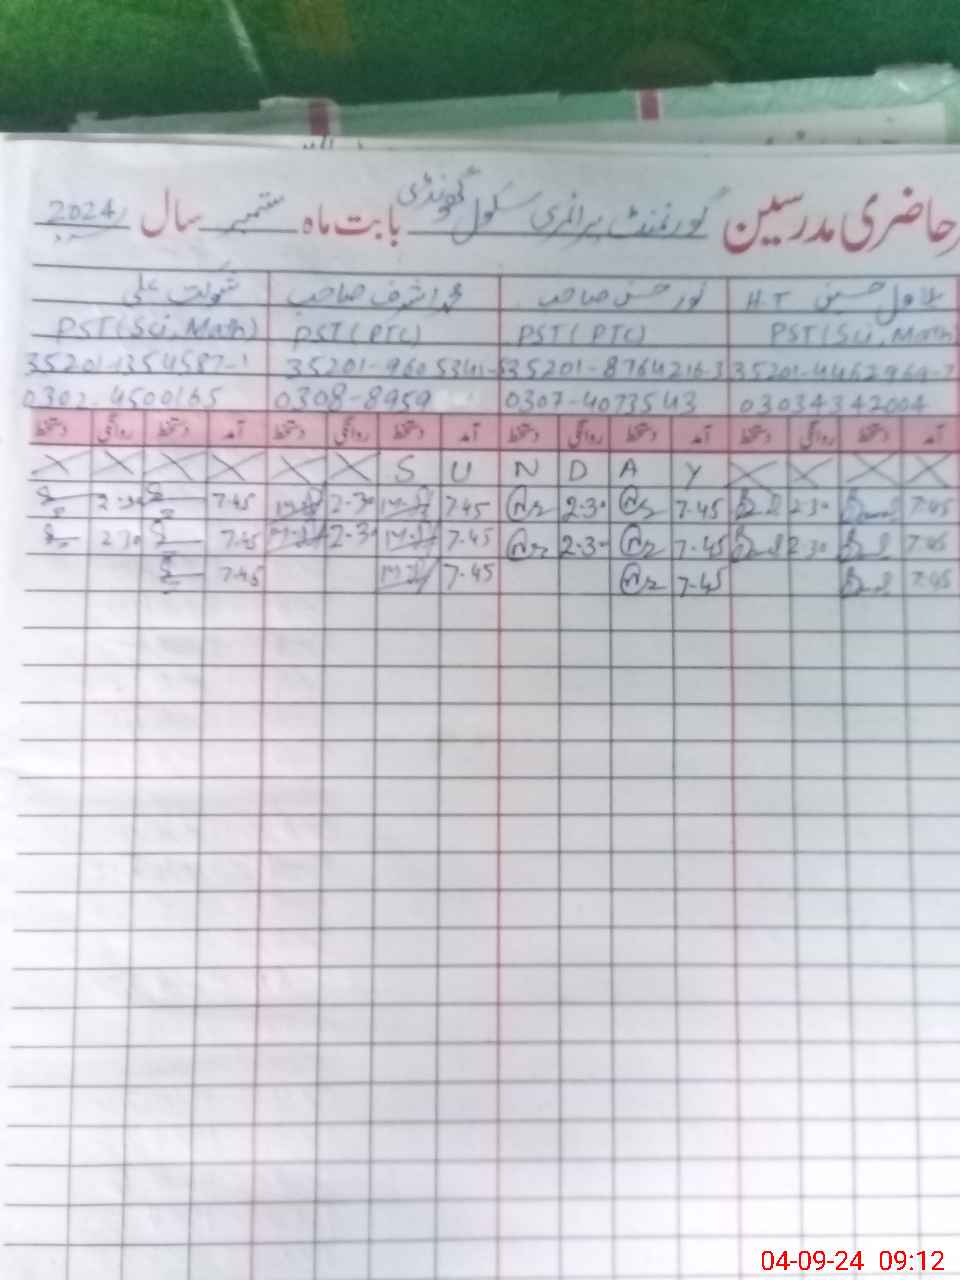 حاضری مدرسین گورنمنٹ پرائمری سکول گونڈی بابت ماہ ستمبر سال 2024ء
حسین H.T نور حسن صاحب محمد اشرف صاحب شوکت علی
PST (Sci, Math) PST (PTC) PST (PTC) PST (Sci, Math)
35201-4462969-7 35201-8764216-3 35201-9605341- 35201-1354587-1
03034342004 0307-4073543 0308-8959 0302-4500165
آمد دستخط روانگی دستخط آمد دستخط روانگی دستخط آمد دستخط روانگی دستخط آمد دستخط روانگی دستخط
X X X X S U N D A Y X X X X X X
7-45 2-30 7-45 2-30 7-45 2-30 7-45 2-30
7-45 2-30 7-45 2-30 7-45 2-30 7-45 2-30
7-45 7-45 7-45 7-45
04-09-24 09:12